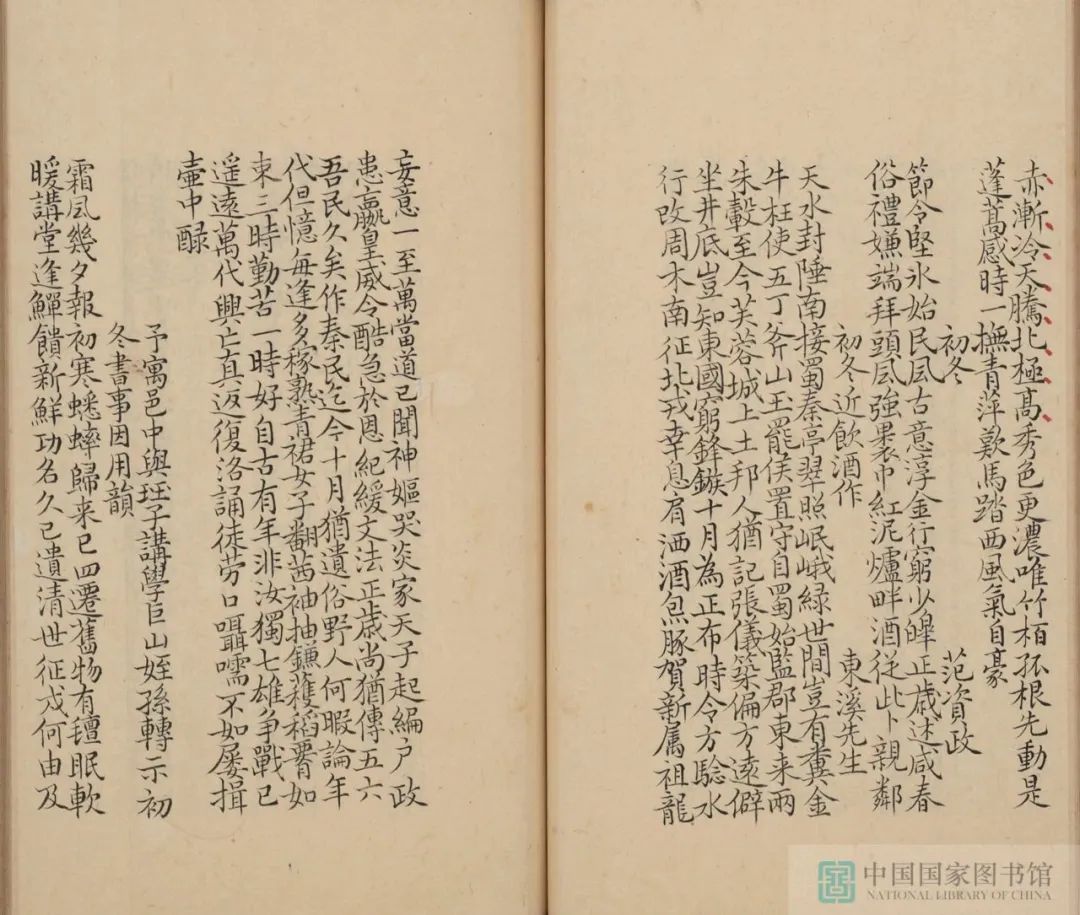 赤漸冷天騰北極高秀色更濃唯竹栢孤根先動是
蓬蒿感時一撫青萍歎馬踏西風氣自豪
初冬 范資政
節令堅氷始民風古意淳金行窮少皞正歲述咸春
俗禮嫌端拜頭風強裹巾紅泥爐畔酒從此卜親鄰
初冬近飲酒作 東溪先生
天水封陲南接蜀秦亭翠照岷峨綠世間豈有糞金
牛枉使五丁斧山玉罷侯置守自蜀始監郡東来兩
朱轂至今芙蓉城上土邦人猶記張儀築偏方遠僻
坐井底豈知東國窮鋒鏃十月為正布時令方騐水
行改周木南征北戎幸息肩洒酒炰豚賀新属祖龍
妄意一至萬當道已聞神嫗哭炎家天子起編户政
患嬴皇威令酷急於恩紀緩文法正歲尚猶傳五六
吾民久矣作秦民迄今十月猶遺俗野人何暇論年
代但憶毎逢多稼熟青裙女子翻茜袖抽鐮穫稻䝮如
束三時勤苦一時好自古有年非汝獨七雄争戰已
遥遠萬代興亡真返復洛誦徒劳口囁嚅不如屡揖
壷中醁
予寓邑中與珏子講學巨山姪孫轉示初
冬書事因用韻
霜風幾夕報初寒蟋蟀歸来已四遷舊物有氊眠軟
暖講堂逢鱓饋新鮮功名久已遺清世征戍何由及
中国国家图书馆
NATIONAL LIBRARY OF CHINA